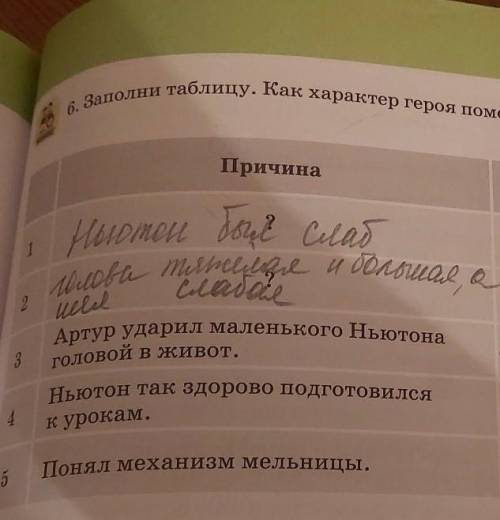 6. Заполни таблицу. Как характер героя помо
Причина
1 Ньютон был слаб
?
2 голова тяжёлая и большая, а
шея слабая
?
3 Артур ударил маленького Ньютона
головой в живот.
4 Ньютон так здорово подготовился
к урокам.
5 Понял механизм мельницы.